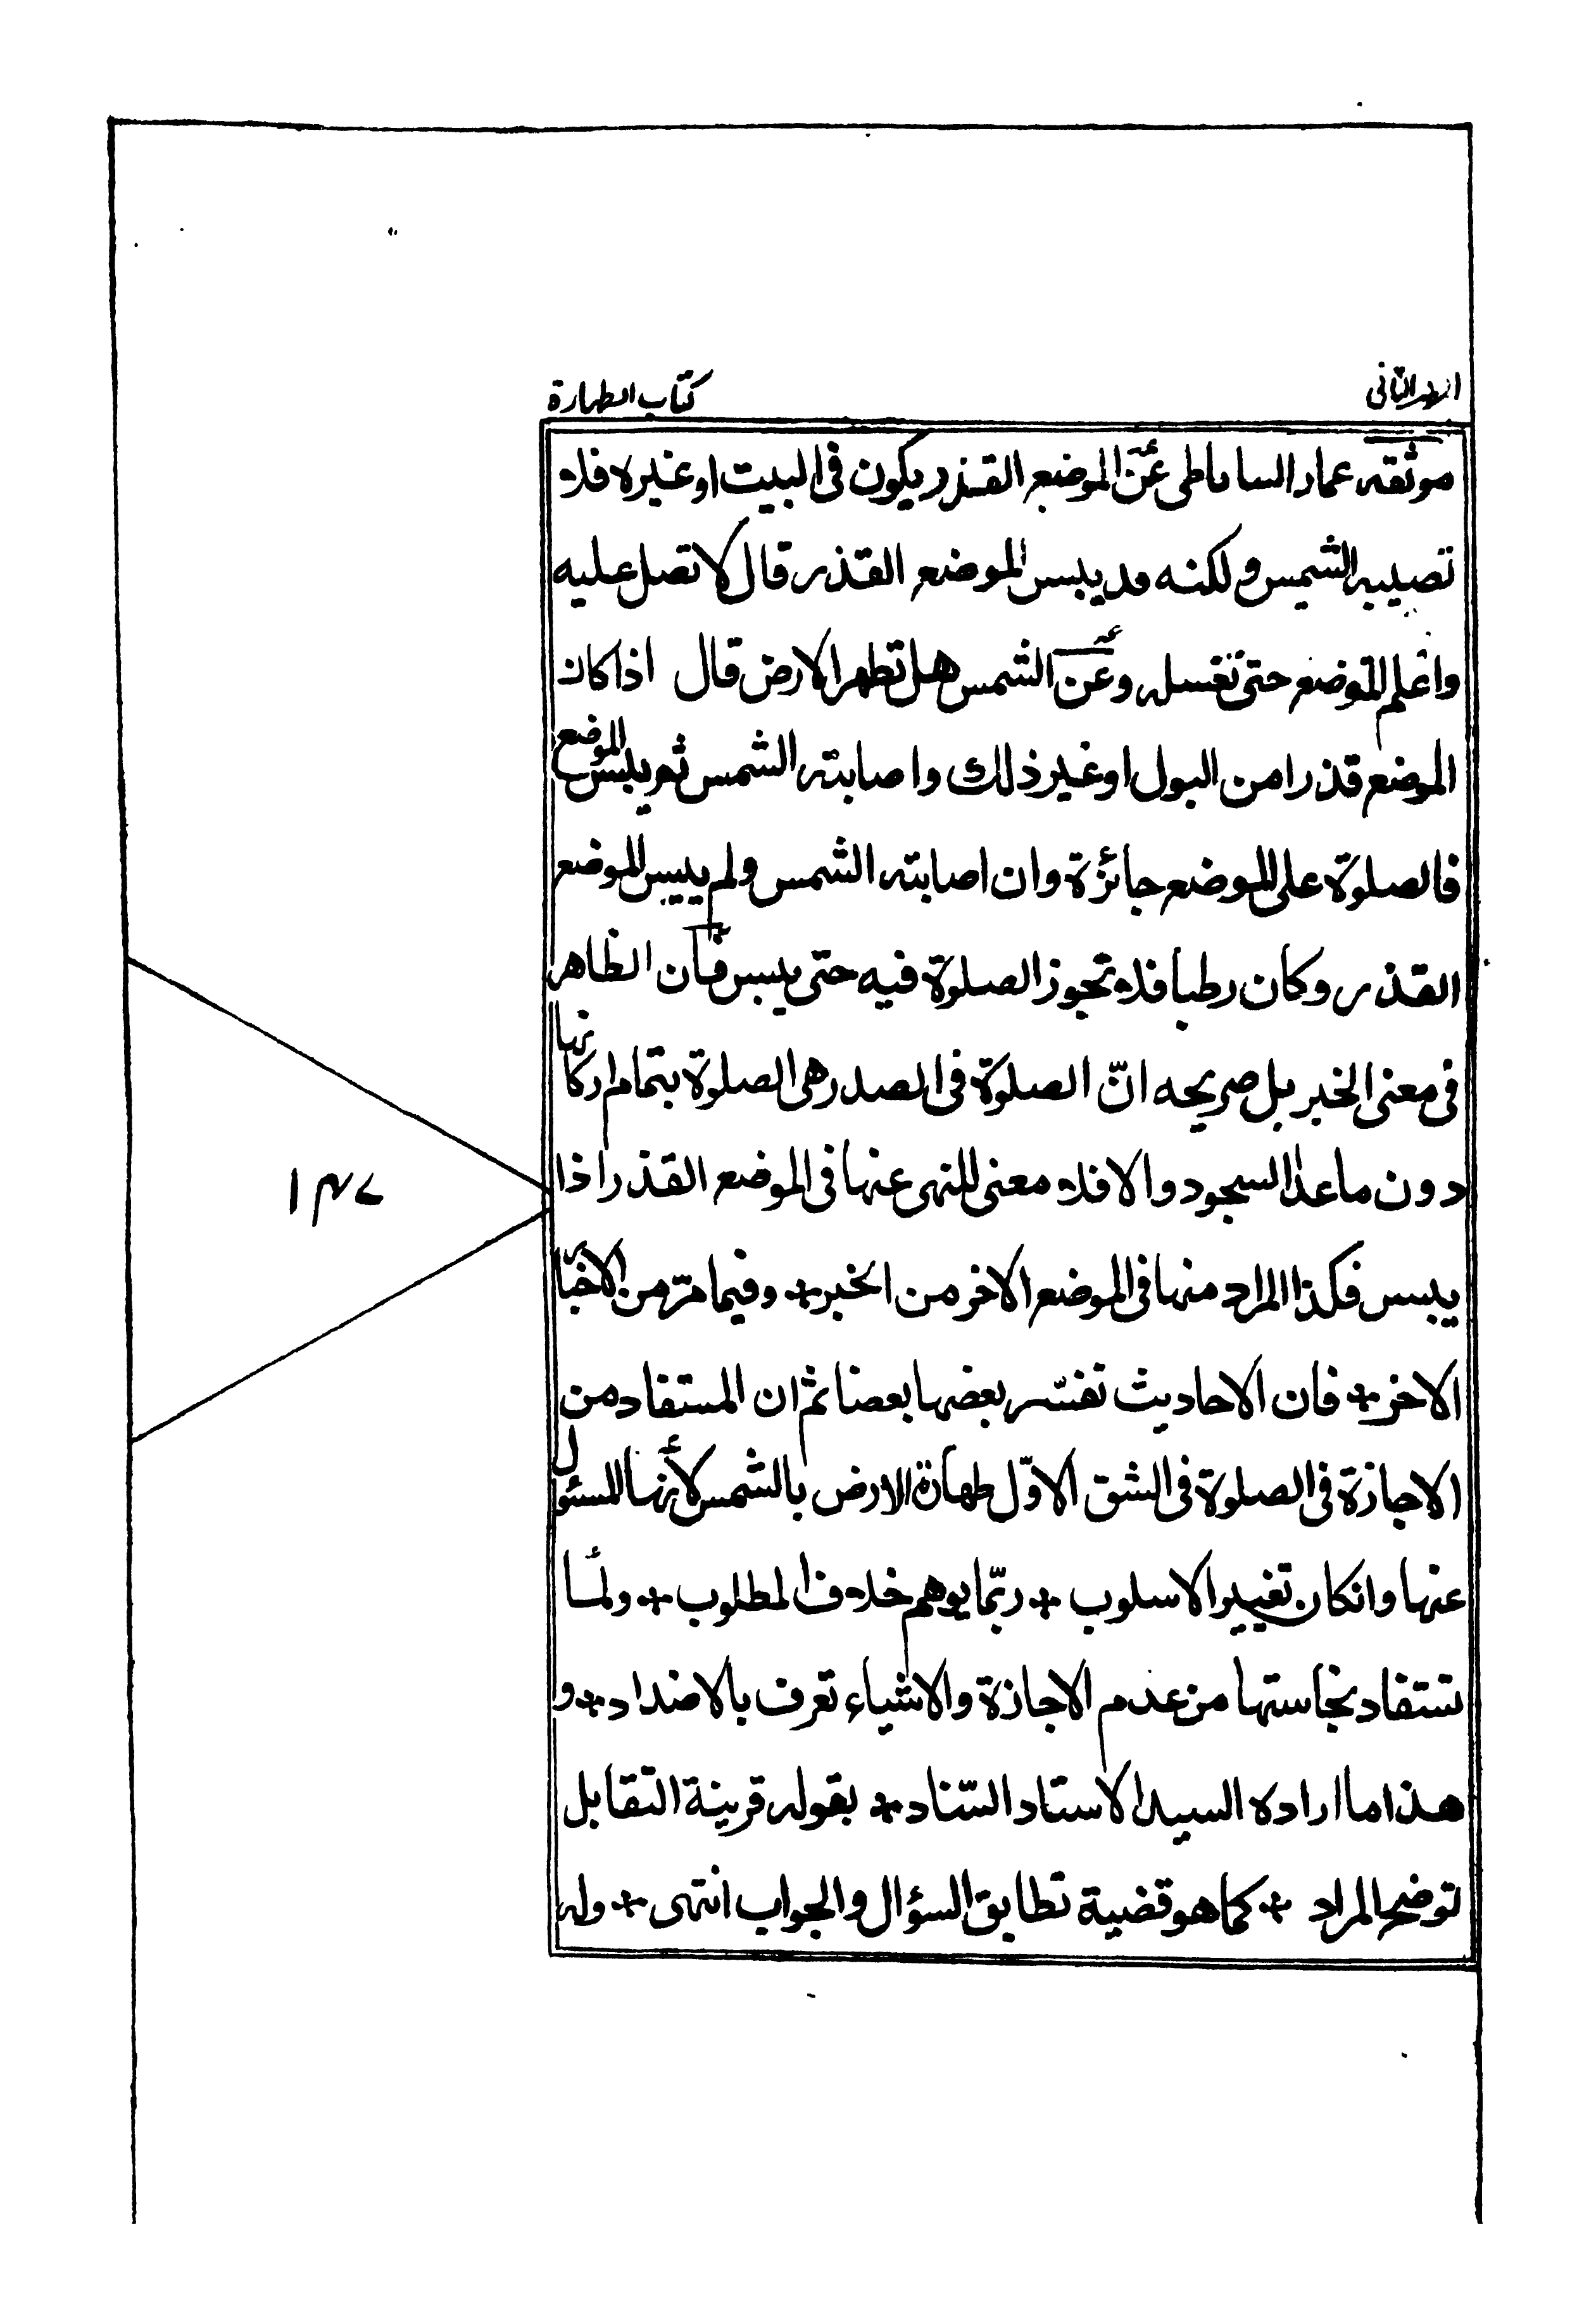 الثاني
كتاب الطهارة
موثقه عمار الساباطى عن الموضع القذر يكون فى البيت او غيره فلا
تصيبه الشمس ولكنه قد يبس الموضع القذر قال لا تصل عليه
واعلم الموضع حتى تغسله وعن الشمس هل تطهر الارض قال اذا كان
الموضع قذرا من البول او غير ذلك واصابته الشمس ثم يبس الموضع
فالصلوة على الموضع جائزة وان اصابته الشمس ولم ييبس الموضع
القذر وكان رطبا فلا تجوز الصلوة فيه حتى ييبس فان الظاهر
فى معنى الخبر بل صريحه انّ الصلوة فى الصدر هى الصلوة بتمام اركانها
دون ما عدا السجود والا فلا معنى للنهى عنها فى الموضع القذر اذا
يبس فكذا المراد منها فى الموضع الاخر من الخبر + وفيما مرّ من الاخبار
الاخر + فان الاحاديث تفسّر بعضها بعضا ثم ان المستفاد من
الاجازة فى الصلوة فى الشق الاوّل طهارة الارض بالشمس لأنها المسئول
عنها وانكان تغيير الاسلوب + ربّما يوهم خلاف المطلوب + ولمّا
تستفاد نجاستها من عدم الاجازة والاشياء تعرف بالاضداد + و
هذا ما اراده السيد الاستاد السّناد + بقوله قرينة التقابل
توضح المراد + كما هو قضية تطابق السؤال والجواب انتهى + وله
١٣٧